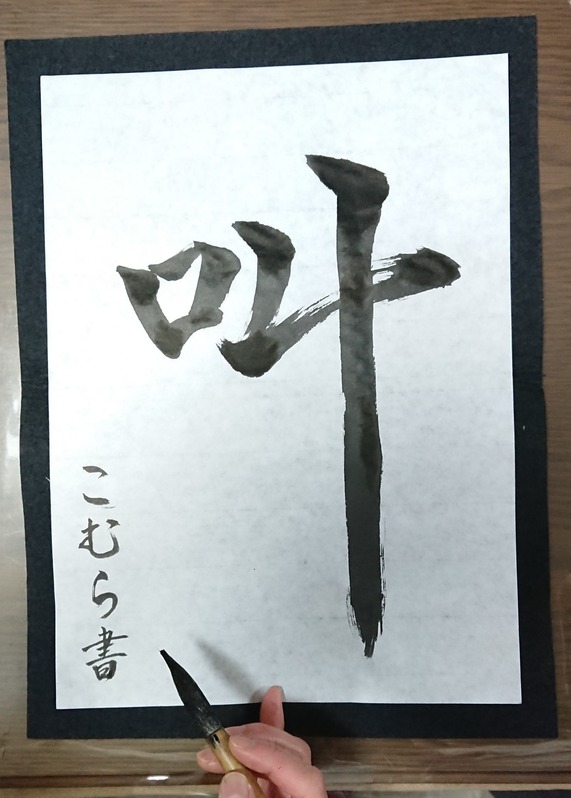 叫
こむら書